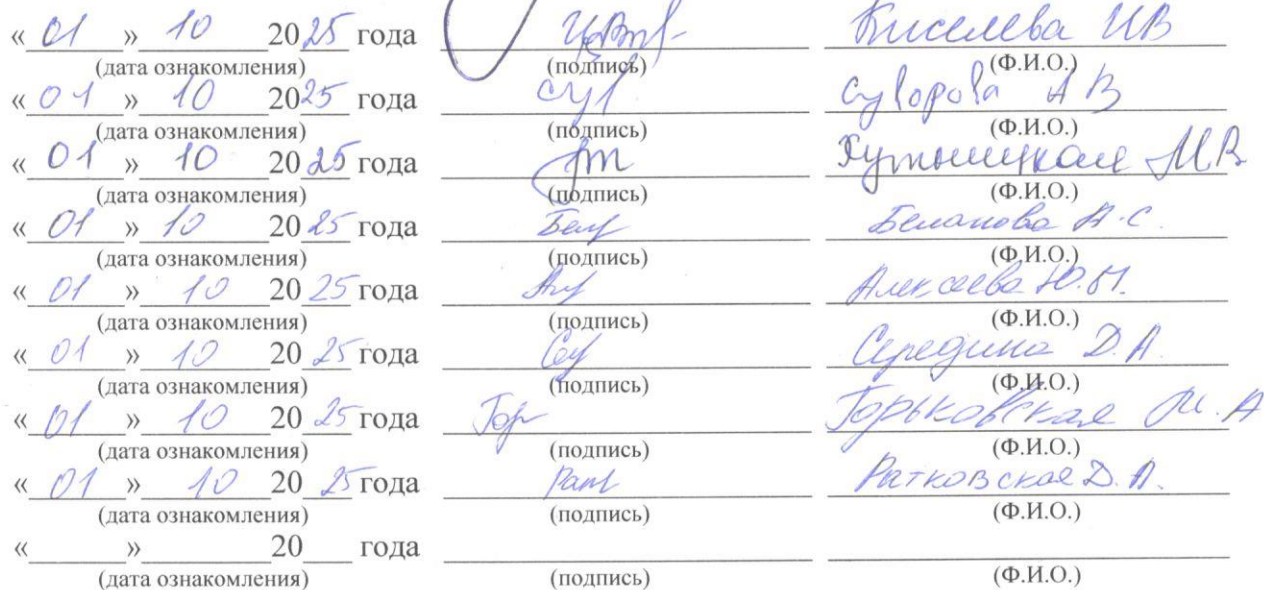 « 01 » 10 2025 года Киселева ИВ
(дата ознакомления) (подпись) (Ф.И.О.)
« 01 » 10 2025 года Сув Суворова АВ
(дата ознакомления) (подпись) (Ф.И.О.)
« 01 » 10 2025 года М.В.
(дата ознакомления) (подпись) (Ф.И.О.)
« 01 » 10 2025 года Беланова А.С.
(дата ознакомления) (подпись) (Ф.И.О.)
« 01 » 10 2025 года Алексеева
(дата ознакомления) (подпись) (Ф.И.О.)
« 01 » 10 2025 года Середина Д.А.
(дата ознакомления) (подпись) (Ф.И.О.)
« 01 » 10 2025 года Гор Горьковская М.А
(дата ознакомления) (подпись) (Ф.И.О.)
« 01 » 10 2025 года Ратковская Д.А.
(дата ознакомления) (подпись) (Ф.И.О.)
« » 20 года
(дата ознакомления) (подпись) (Ф.И.О.)